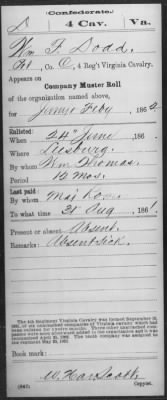 Confederate.
D 4 Cav. Va.
Wm F. Dodd
Pvt, Co. C, 4 Reg't Virginia Cavalry.
Appears on
Company Muster Roll
of the organization named above,
for Jan & Feby, 1862.
Enlisted:
When 24" June, 186
Where Leesburg.
By whom Wm Thomas.
Period 12 mos.
Last paid:
By whom Maj.
To what time 31 Aug, 1861.
Present or absent Absent.
Remarks: Absent sick.
Book mark:
(642) Copyist.